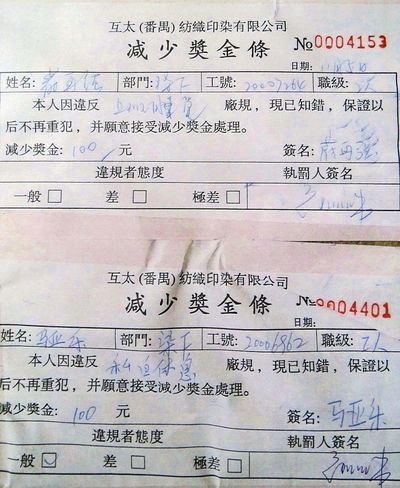 互太(番禺)紡織印染有限公司
减少獎金條 №0004153
日期:
姓名: 部門: 染下 工號: 20007264 職級: 工人
本人因違反 廠規，現已知錯，保證以
后不再重犯，并願意接受减少獎金處理。
减少獎金: 100 元 簽名:
違規者態度 執罰人簽名
一般 □ 差 □ 極差 □
互太(番禺)紡織印染有限公司
减少獎金條 №0004401
日期:
姓名: 马亚乐 部門: 染下 工號: 20006862 職級: 工人
本人因違反 廠規，現已知錯，保證以
后不再重犯，并願意接受减少獎金處理。
减少獎金: 100 元 簽名: 马亚乐
違規者態度 執罰人簽名
一般 ☑ 差 □ 極差 □